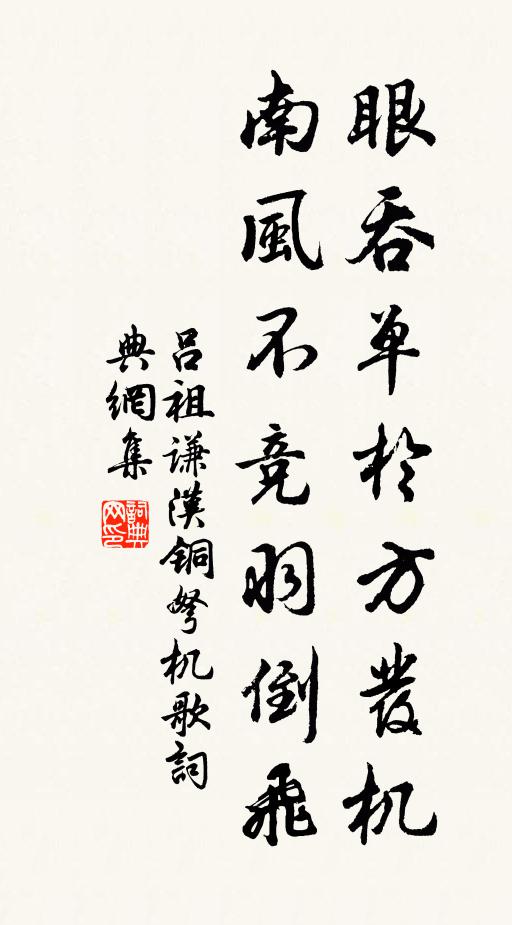 眼吞单於方發机
南風不竞羽倒飛
吕祖谦漢铜弩机歌詞
典網集
詞典
网印